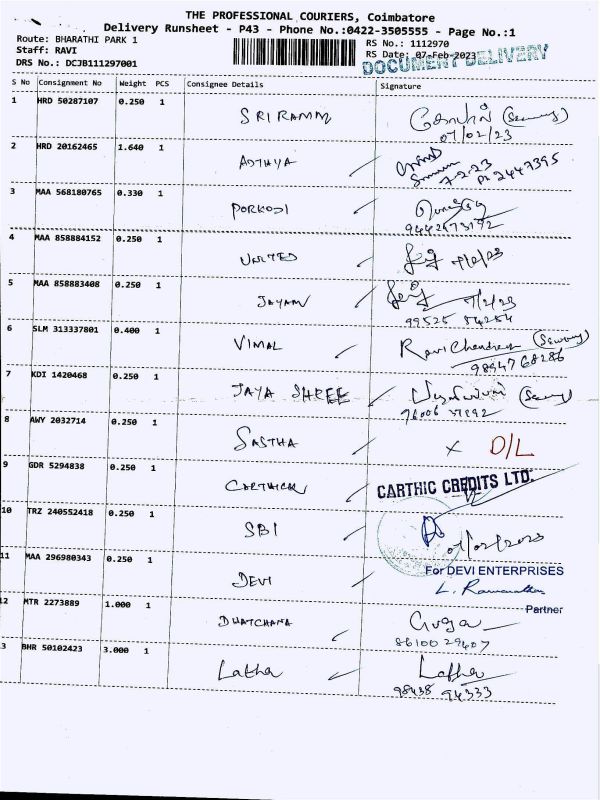 THE PROFESSIONAL COURIERS, Coimbatore
Delivery Runsheet - P43 - Phone No.:0422-3505555 - Page No.:1
Route: BHARATHI PARK 1
RS No.: 1112970
Staff: RAVI
RS Date: 07-Feb-2023
DRS No.: DCJB111297001
DOCUMENT DELIVERY
S No Consignment No Weight PCS Consignee Details Signature
1 HRD 50287107 0.250 1 SRI RAMM
07/02/23
2 HRD 20162465 1.640 1 ADTHYA
7-2-23 Ph 2447395
3 MAA 568180765 0.330 1 PORKODI
4 MAA 858884152 0.250 1 UNITED 7/2/23
5 MAA 858883408 0.250 1 JAYAM 7/2/23
99525 54254
6 SLM 313337801 0.400 1 VIMAL Ravi Chandran
98947 68286
7 KDI 1420468 0.250 1 JAYA SHREE
8 AWY 2032714 0.250 1 SASTHA × D/L
9 GDR 5294838 0.250 1 CARTHICK CARTHIC CREDITS LTD.
10 TRZ 240552418 0.250 1 SBI 07/02/2023
11 MAA 296980343 0.250 1 DEVI For DEVI ENTERPRISES
L. Ramanathan
Partner
2 MTR 2273889 1.000 1 DHATCHANA Guga
86100 29407
3 BHR 50102423 3.000 1 Latha Latha
98438 94333